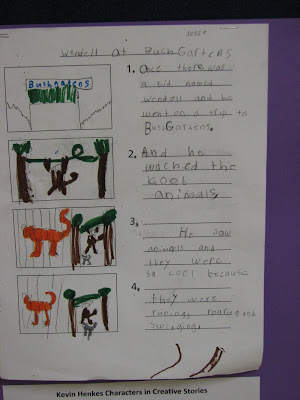 Jesse
Wendell at Bush Gartens
Bushgatens
1. Once there was
a kid named
Wendell and he
went on a trip to
Bush Gartens.
2. And he
wached the
kool
animals
3. He saw
animals and
they were
so cool because
4. they were
runing, roaring and
swinging.
Kevin Henkes Characters in Creative Stories